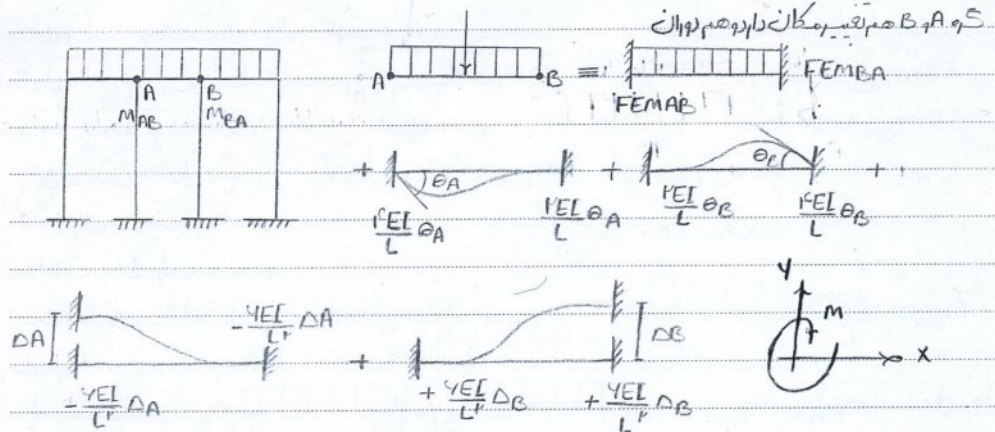 گره A و B هم تغییر مکان دارد و هم دوران
A B
M_AB M_BA
A B ≡ FEM_AB FEM_BA
+ θ_A + θ_B +
۴EI/L θ_A ۲EI/L θ_A ۲EI/L θ_B ۴EI/L θ_B
ΔA -۶EI/L² ΔA + ΔB
-۶EI/L² ΔA +۶EI/L² ΔB +۶EI/L² ΔB
Y M X